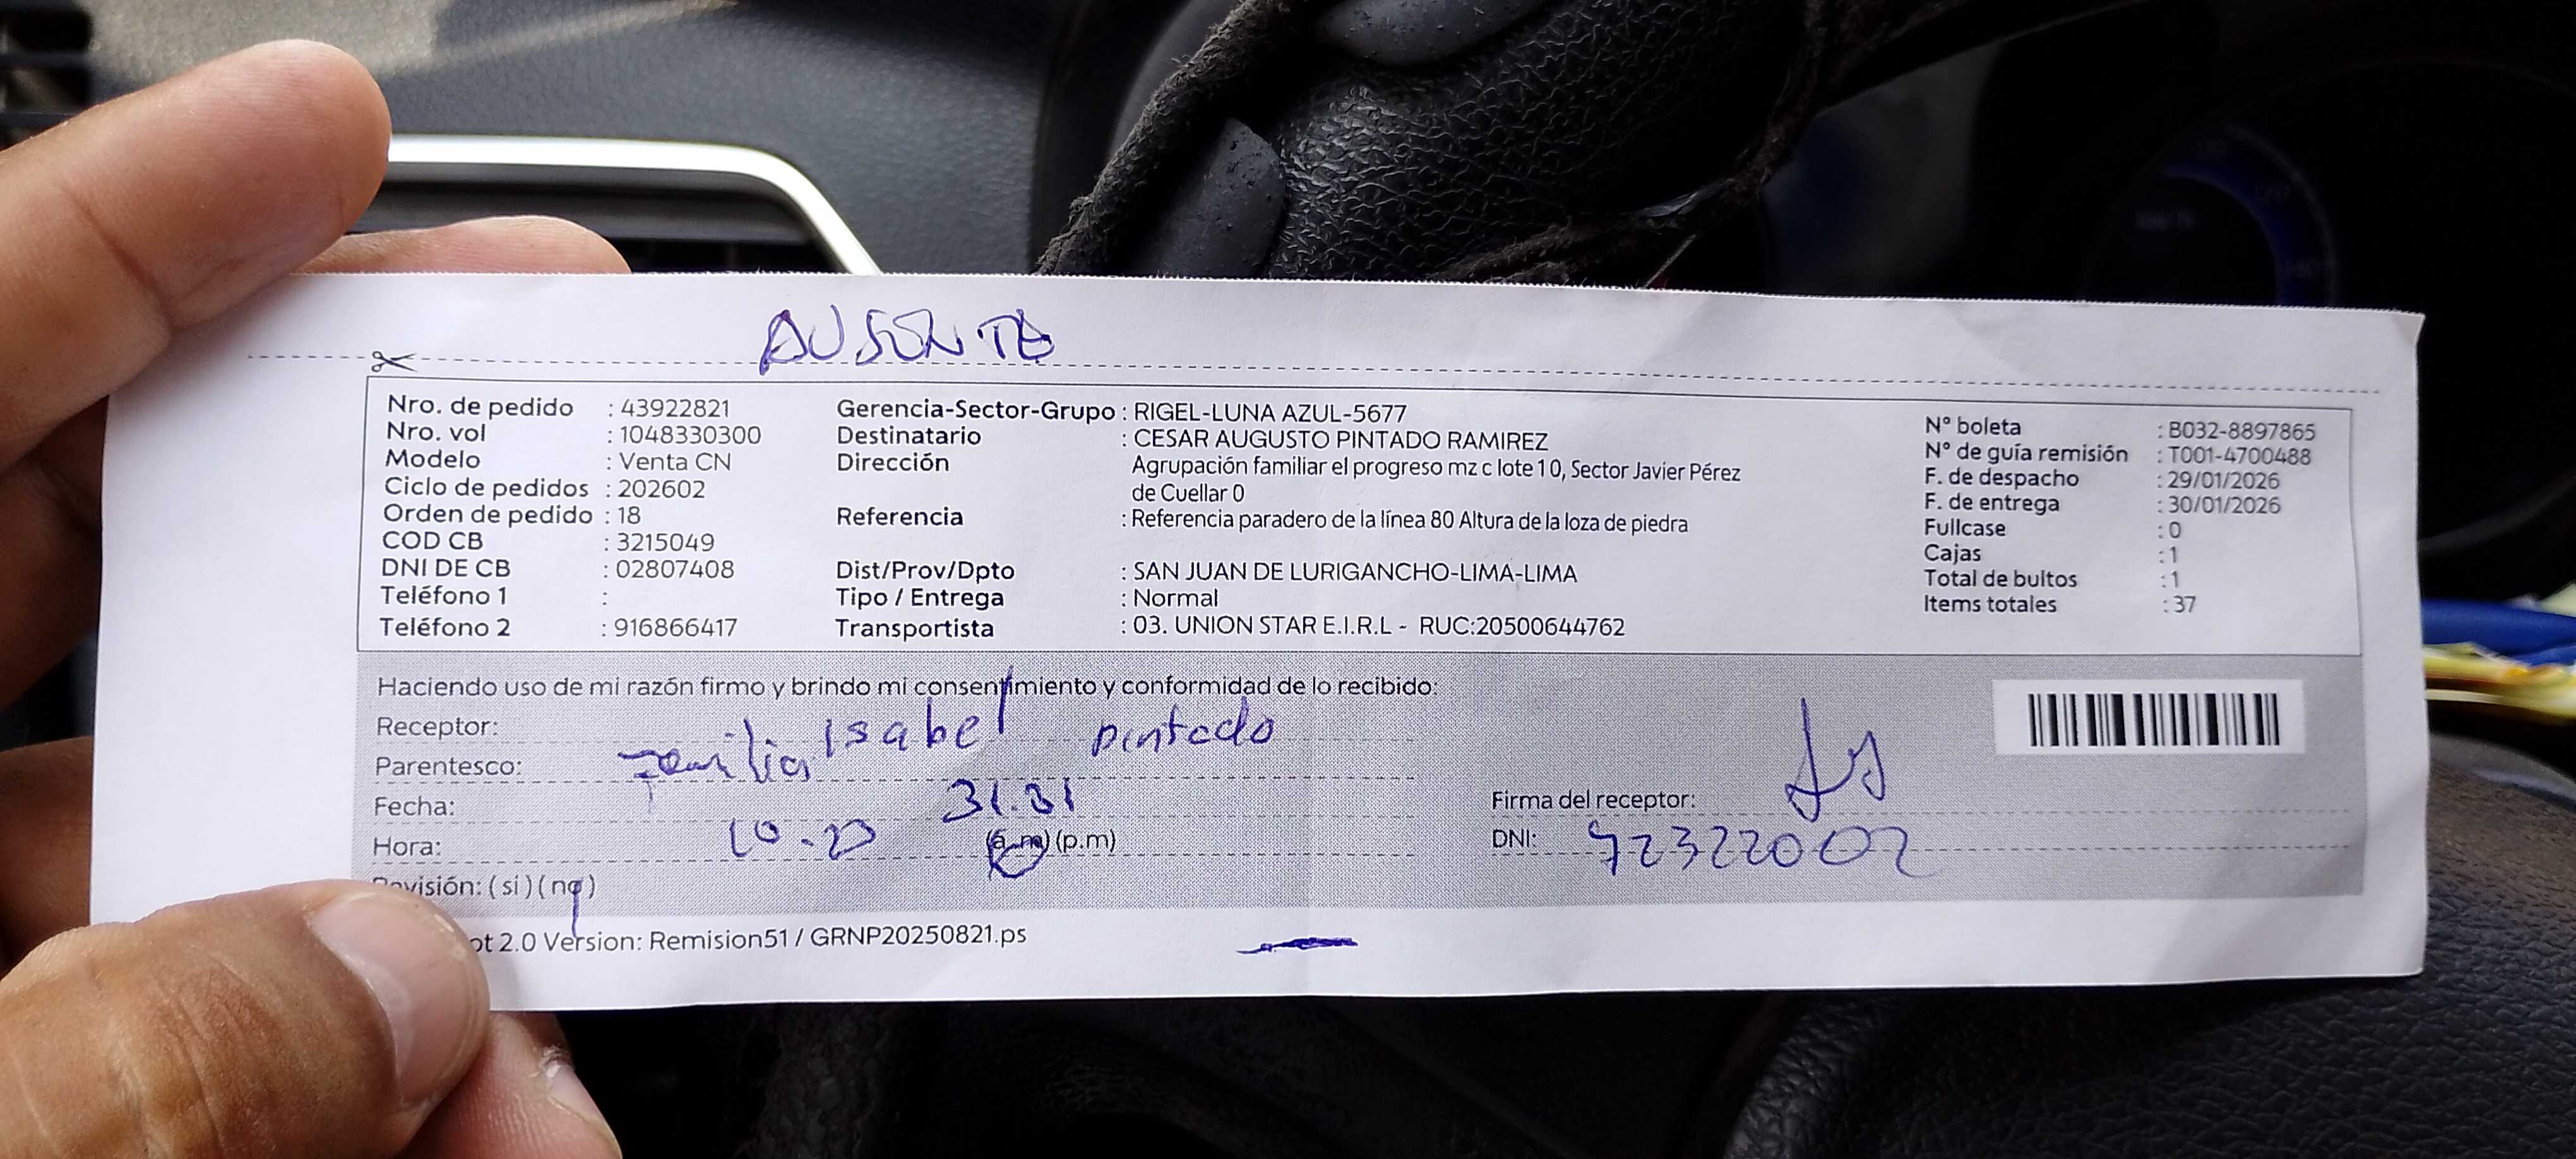 AUSENTE
Nro. de pedido : 43922821
Nro. vol : 1048330300
Modelo : Venta CN
Ciclo de pedidos : 202602
Orden de pedido : 18
COD CB : 3215049
DNI DE CB : 02807408
Teléfono 1 :
Teléfono 2 : 916866417
Gerencia-Sector-Grupo : RIGEL-LUNA AZUL-5677
Destinatario : CESAR AUGUSTO PINTADO RAMIREZ
Dirección Agrupación familiar el progreso mz c lote 10, Sector Javier Pérez
de Cuellar 0
Referencia : Referencia paradero de la línea 80 Altura de la loza de piedra
Dist/Prov/Dpto : SAN JUAN DE LURIGANCHO-LIMA-LIMA
Tipo / Entrega : Normal
Transportista : 03. UNION STAR E.I.R.L - RUC:20500644762
N° boleta : B032-8897865
N° de guía remisión : T001-4700488
F. de despacho : 29/01/2026
F. de entrega : 30/01/2026
Fullcase : 0
Cajas : 1
Total de bultos : 1
Items totales : 37
Haciendo uso de mi razón firmo y brindo mi consentimiento y conformidad de lo recibido:
Receptor: Isabel pintado
Parentesco: Familia
Fecha: 31.01
Hora: (a.m) (p.m)
Firma del receptor:
DNI: 72322002
visión: (si) (no)
ot 2.0 Version: Remision51 / GRNP20250821.ps